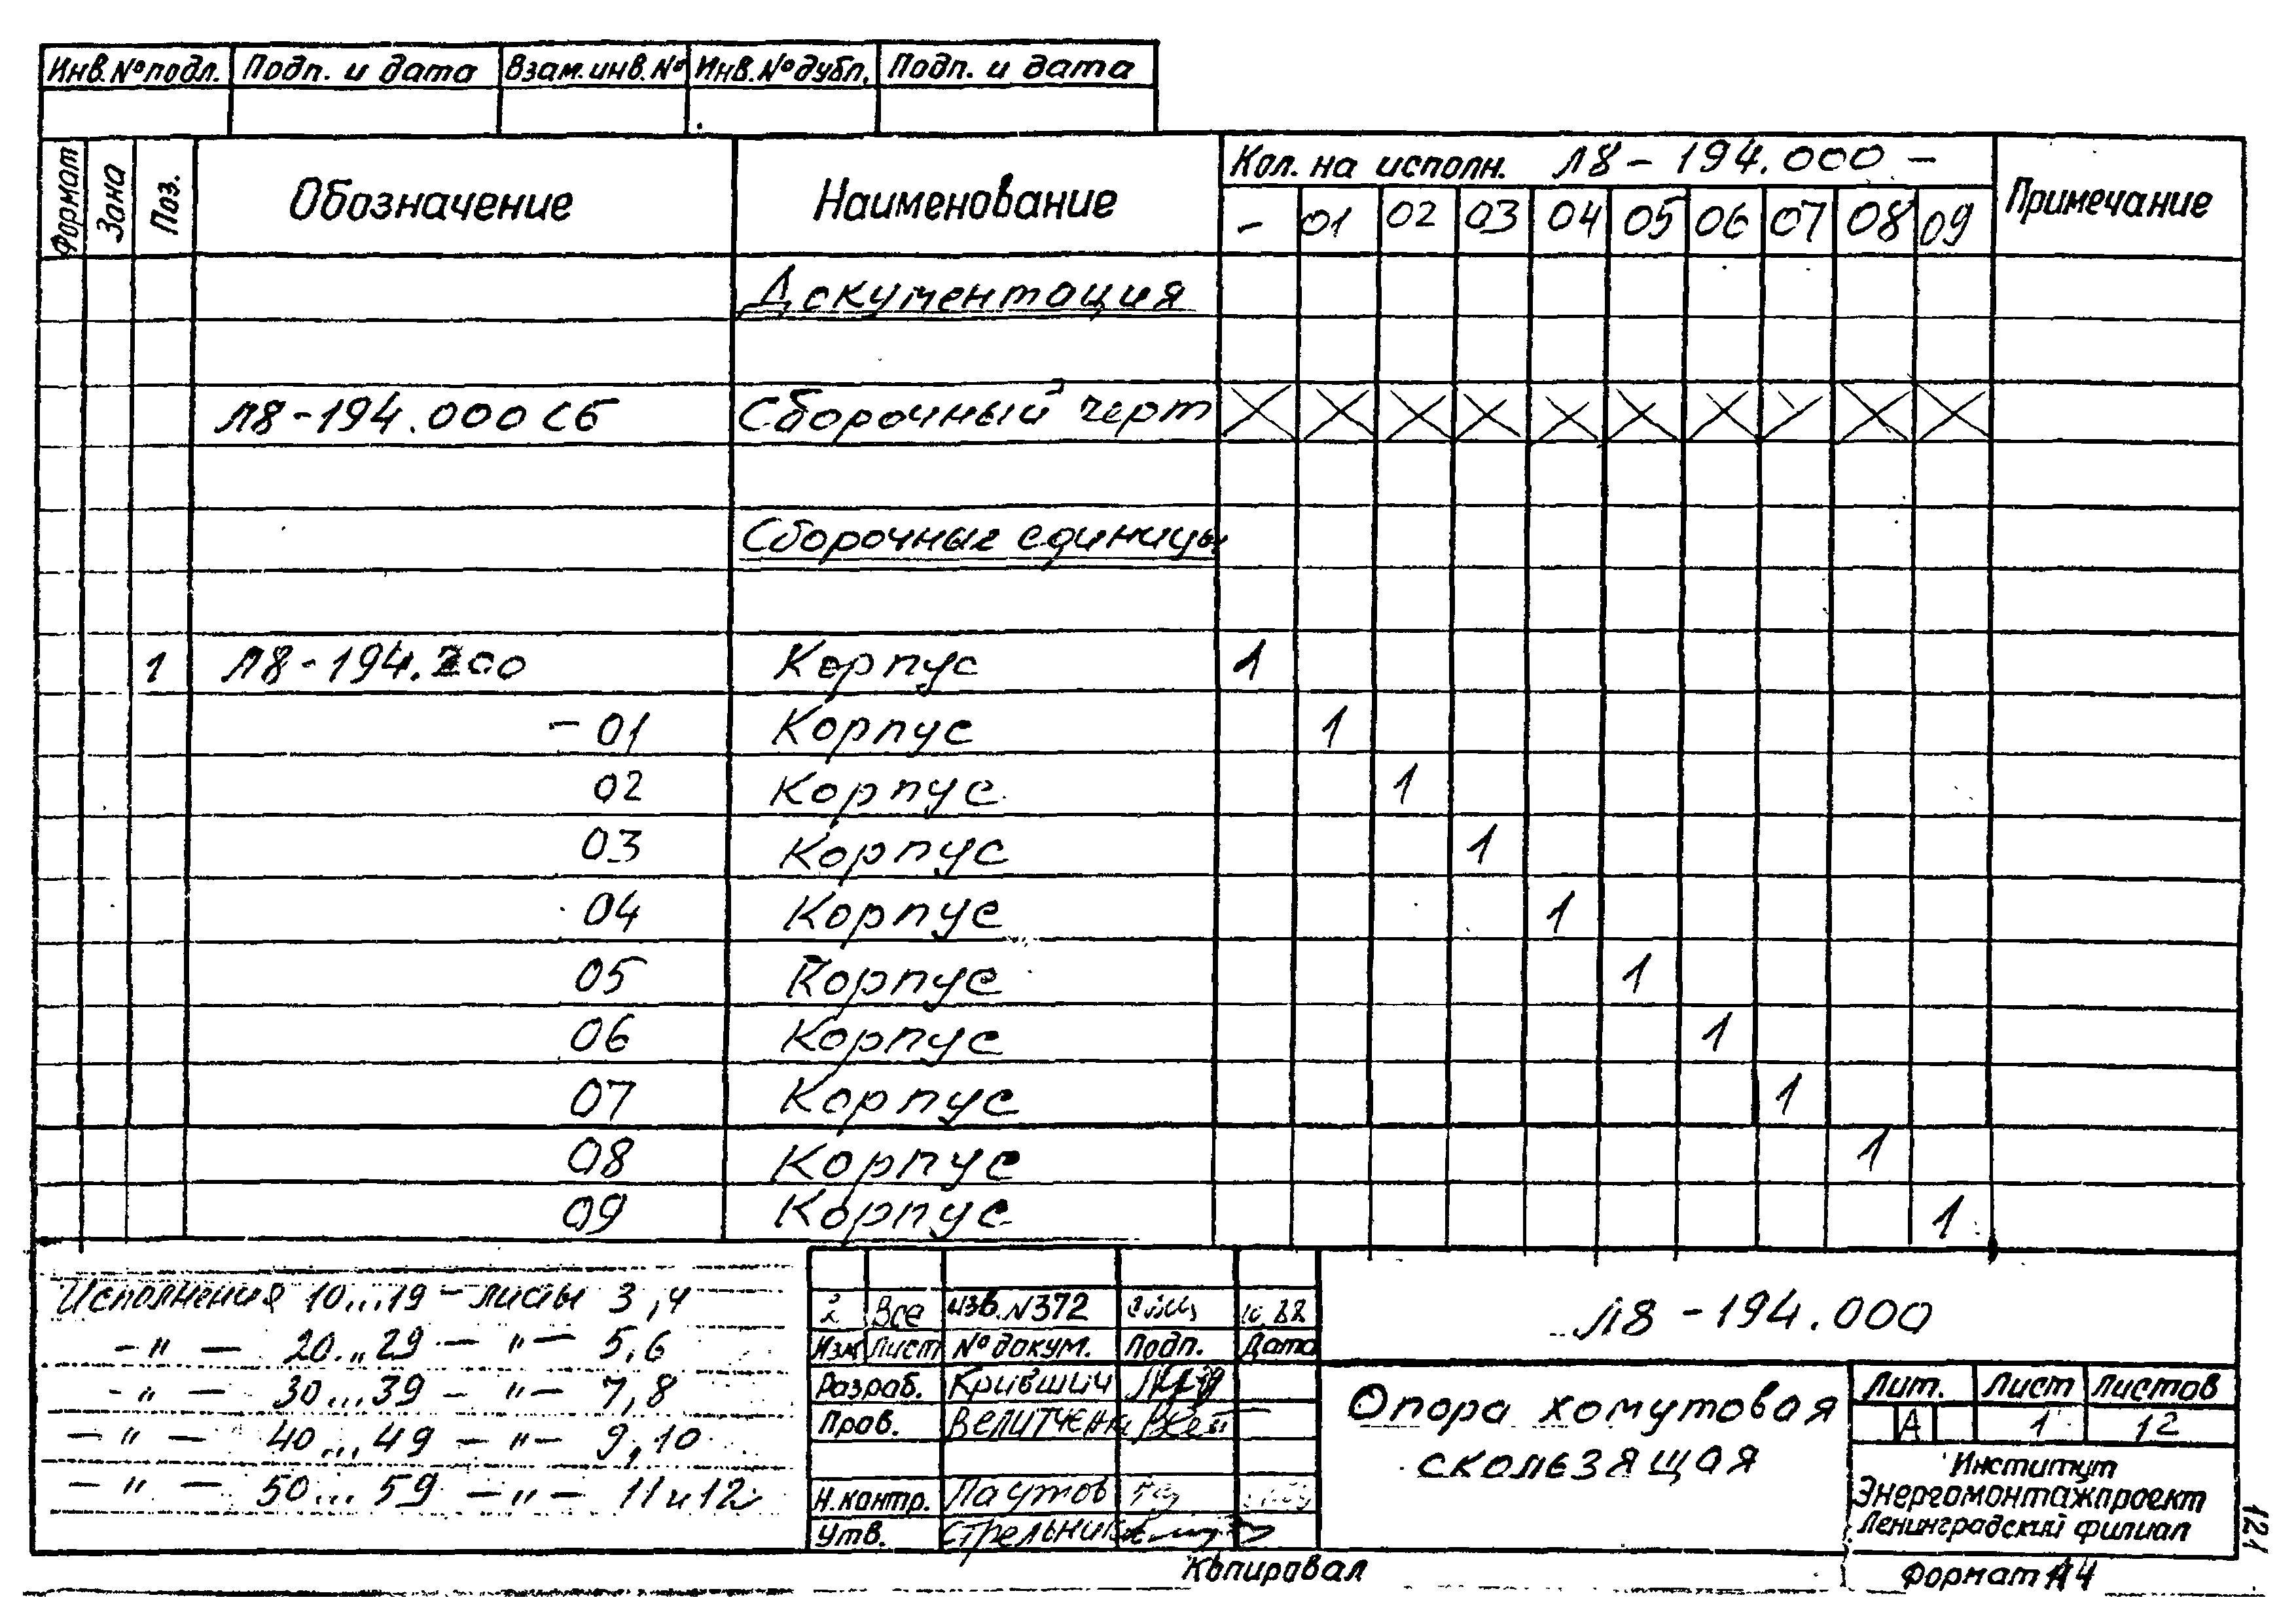 Инв.№подл. Подп. и дата Взам.инв.№ Инв.№дубл. Подп. и дата
Формат Зона Поз. Обозначение Наименование Кол. на исполн. Л8-194.000- Примечание
- 01 02 03 04 05 06 07 08 09
Документация
Л8-194.000 СБ Сборочный черт
Сборочные единицы
1 Л8-194.200 Корпус 1
-01 Корпус 1
02 Корпус 1
03 Корпус 1
04 Корпус 1
05 Корпус 1
06 Корпус 1
07 Корпус 1
08 Корпус 1
09 Корпус 1
Исполнения 10...19 - листы 3,4
-"- 20...29 -"- 5,6
-"- 30...39 -"- 7,8
-"- 40...49 -"- 9,10
-"- 50...59 -"- 11и12
2 Все изв.N372
Изм Лист №докум. Подп. Дата
Разраб. Крившич
Пров. Велитченк
Н.контр. Паутов
Утв. Стрельник
Л8-194.000
Опора хомутовая
скользящая
Лит. Лист Листов
А 1 12
Институт
Энергомонтажпроект
Ленинградский филиал
Копировал
Формат А4
121